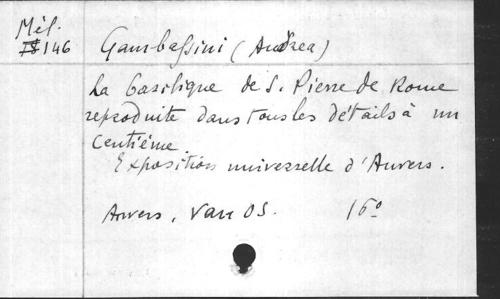 Mél.
146 Gambassini (Andrea)
La basilique de S. Pierre de Rome
reproduite dans tous les détails à un
centième.
Exposition universelle d'Anvers.
Anvers, Van Os. 16°